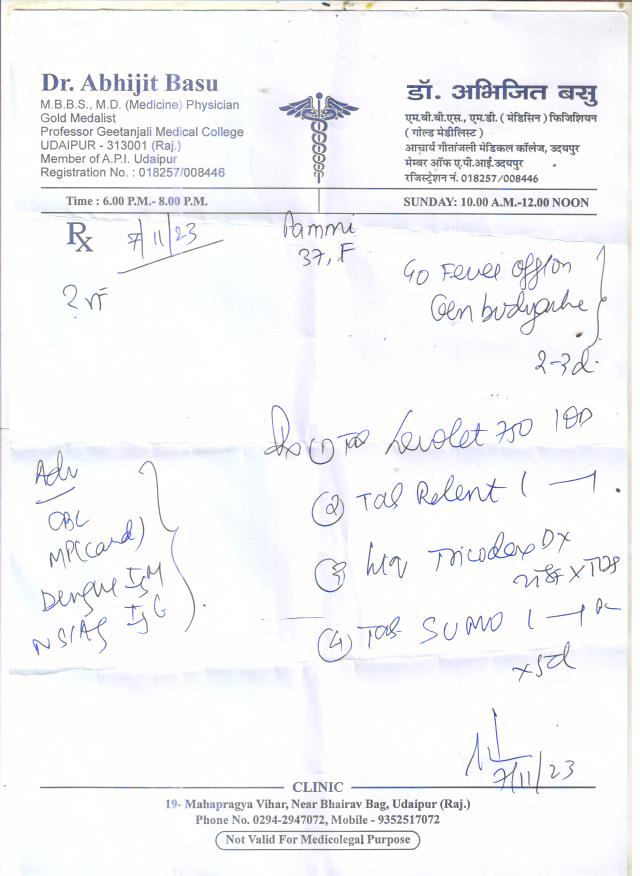 Dr. Abhijit Basu
M.B.B.S., M.D. (Medicine) Physician
Gold Medalist
Professor Geetanjali Medical College
UDAIPUR - 313001 (Raj.)
Member of A.P.I. Udaipur
Registration No. : 018257/008446
डॉ. अभिजित बसु
एम.बी.बी.एस., एम.डी. ( मेडिसिन ) फिजिशियन
( गोल्ड मेडीलिस्ट )
आचार्य गीतांजली मेडिकल कॉलेज, उदयपुर
मेम्बर ऑफ ए.पी.आई.उदयपुर
रजिस्ट्रेशन नं. 018257/008446
Time : 6.00 P.M.- 8.00 P.M.
SUNDAY: 10.00 A.M.-12.00 NOON
Rx 7/11/23
Pammi
37, F
Fever off/on
Gen bodyache
2-3d.
Rx (1) Tab Levolet 750 1 OD
(2) Tab Relent 1 — 1
(3) Liq Tricodex Dx
x TDS
(4) Tab SUMO 1 — 1
x 5d
Adv
CBC
MP (Card)
Dengue IgM
NS1Ag IgG
7/11/23
CLINIC
19- Mahapragya Vihar, Near Bhairav Bag, Udaipur (Raj.)
Phone No. 0294-2947072, Mobile - 9352517072
Not Valid For Medicolegal Purpose